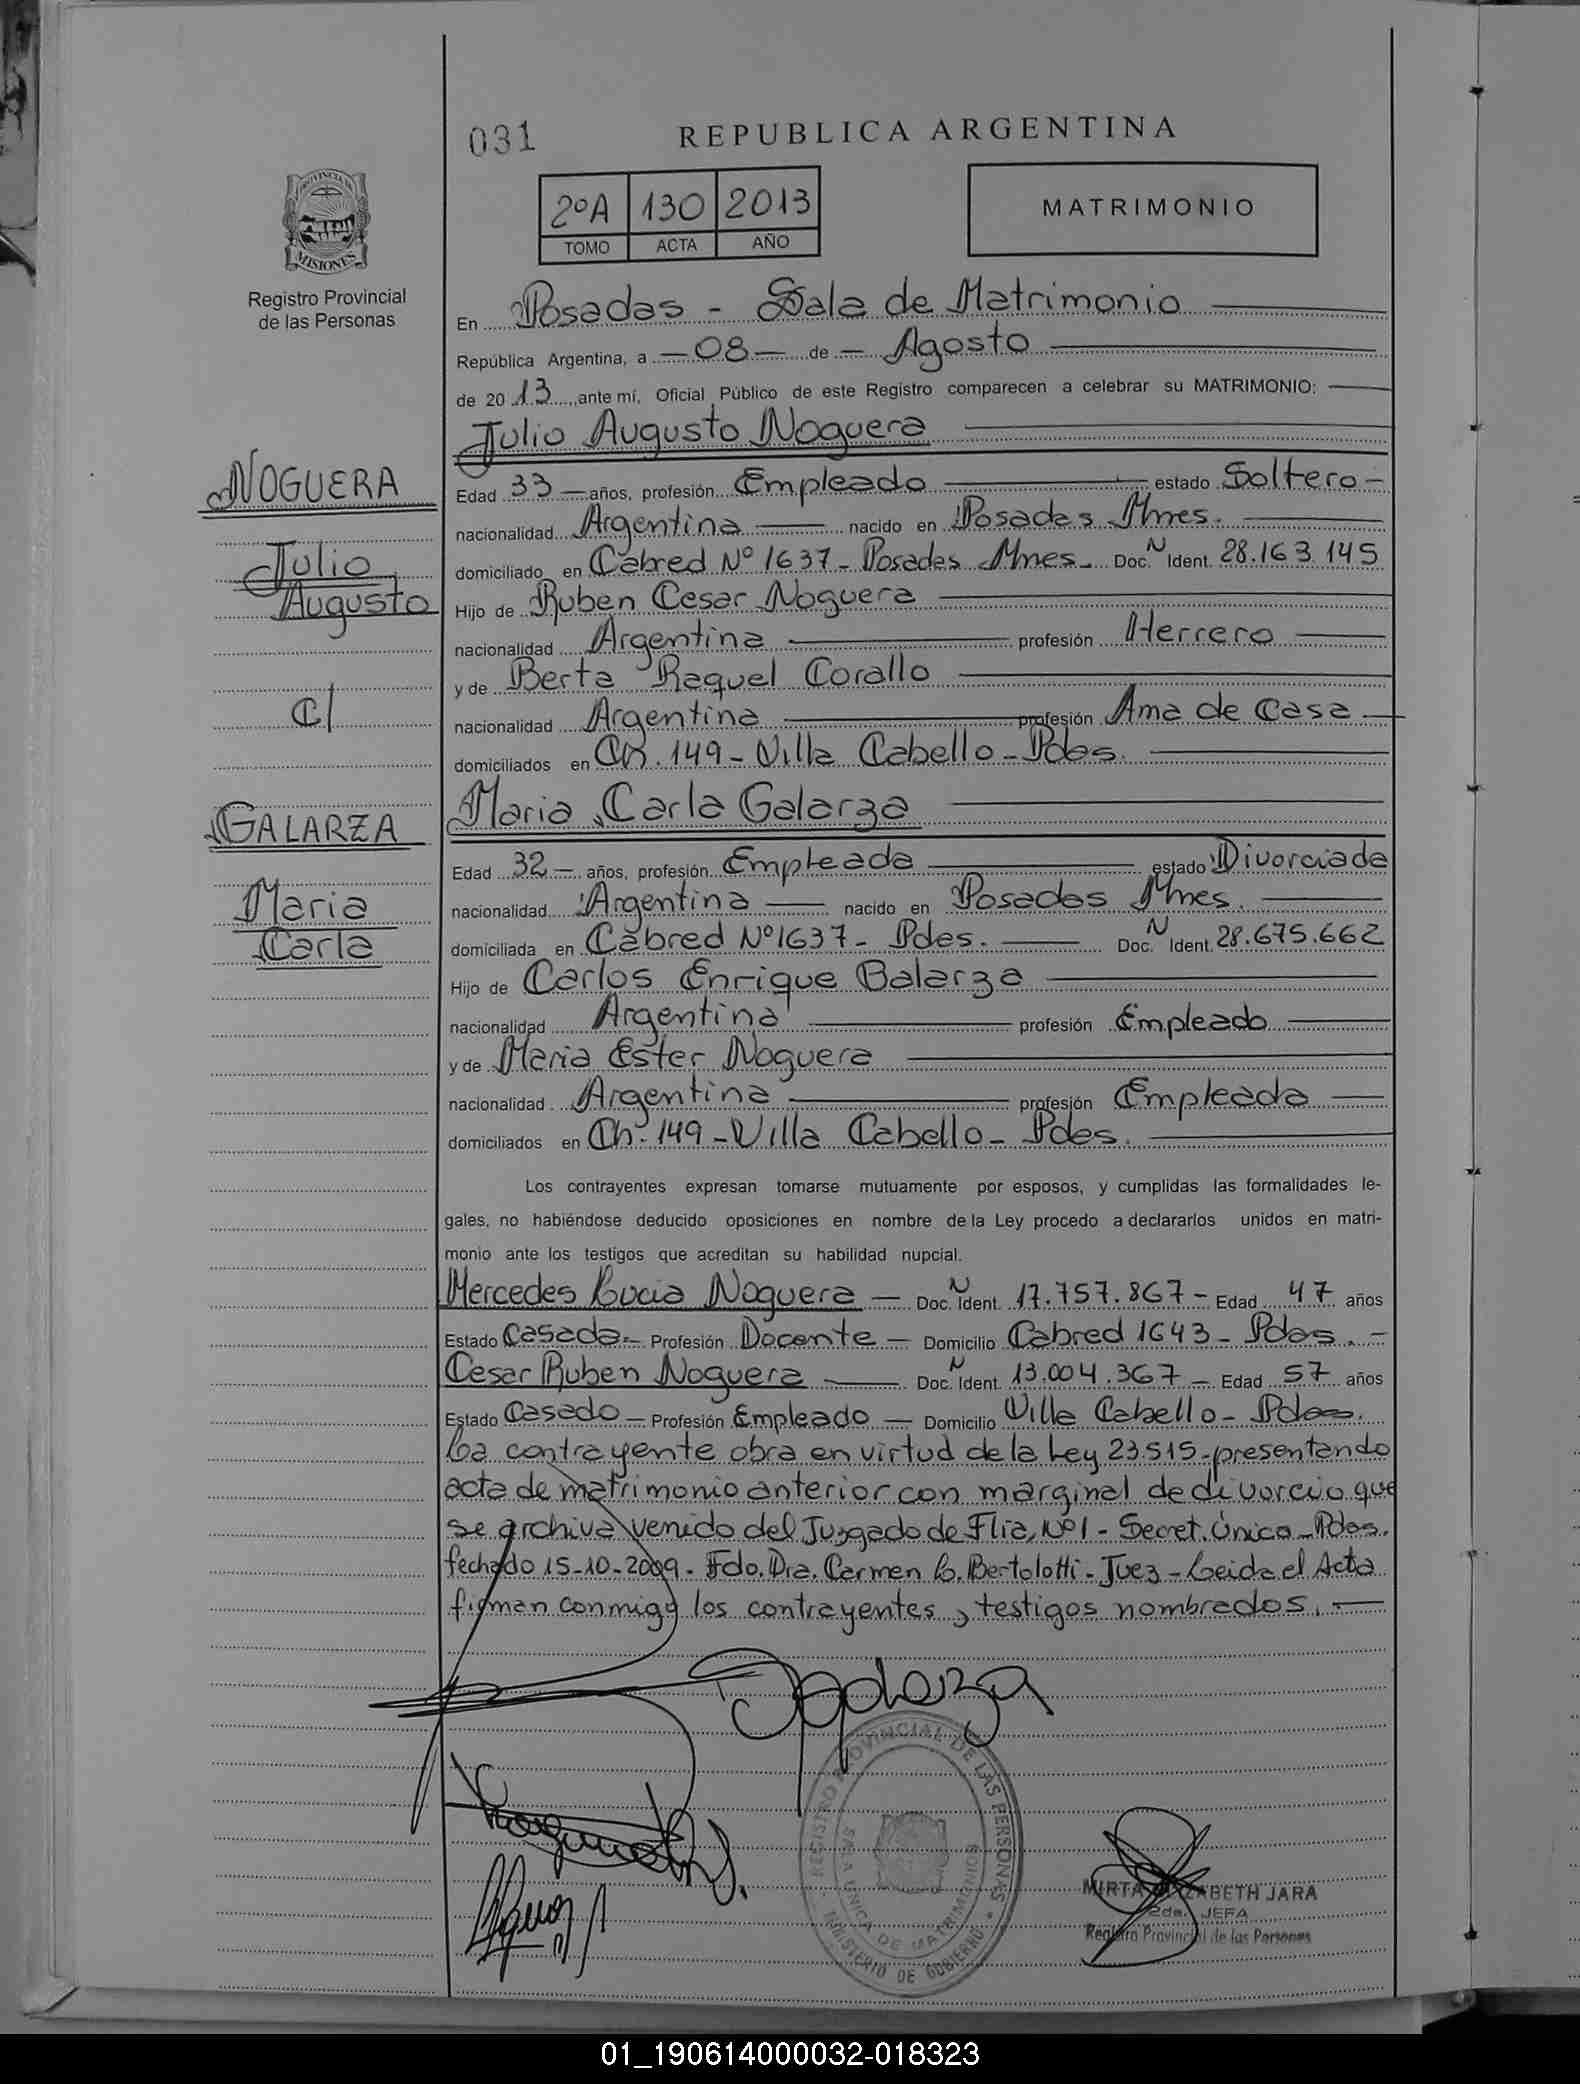 031
REPUBLICA ARGENTINA
2ºA 130 2013
TOMO ACTA AÑO
MATRIMONIO
PROVINCIA DE
MISIONES
Registro Provincial
de las Personas
En Posadas - Sala de Matrimonio
República Argentina, a -08- de - Agosto
de 2013 ante mí, Oficial Público de este Registro comparecen a celebrar su MATRIMONIO:
Julio Augusto Noguera
NOGUERA
Julio
Augusto
C/
GALARZA
Maria
Carla
Edad 33 - años, profesión Empleado estado Soltero -
nacionalidad Argentina nacido en Posadas Mnes.
domiciliado en Cabred Nº 1637 - Posadas Mnes. Doc. N Ident. 28.163.145
Hijo de Ruben Cesar Noguera
nacionalidad Argentina profesión Herrero
y de Berta Raquel Corallo
nacionalidad Argentina profesión Ama de Casa
domiciliados en Ch. 149 - Villa Cabello - Pdas.
Maria Carla Galarza
Edad 32 - años, profesión Empleada estado Divorciada
nacionalidad Argentina nacido en Posadas Mnes.
domiciliada en Cabred Nº 1637 - Pdas. Doc. N Ident. 28.675.662
Hijo de Carlos Enrique Balarza
nacionalidad Argentina profesión Empleado
y de Maria Ester Noguera
nacionalidad Argentina profesión Empleada
domiciliados en Ch. 149 - Villa Cabello - Pdas.
Los contrayentes expresan tomarse mutuamente por esposos, y cumplidas las formalidades le-
gales, no habiéndose deducido oposiciones en nombre de la Ley procedo a declararlos unidos en matri-
monio ante los testigos que acreditan su habilidad nupcial.
Mercedes Lucia Noguera - Doc. N Ident. 17.757.867 - Edad 47 años
Estado Casada - Profesión Docente - Domicilio Cabred 1643 - Pdas. -
Cesar Ruben Noguera Doc. N Ident. 13.004.367 - Edad 57 años
Estado Casado - Profesión Empleado - Domicilio Villa Cabello - Pdas.
La contrayente obra en virtud de la Ley 23.515 - presentando
acta de matrimonio anterior con marginal de divorcio que
se archiva venido del Juzgado de Flia. Nº1 - Secret. Única - Pdas.
fechado 15-10-2009 - Fdo. Dra. Carmen L. Bertolotti - Juez - Leida el Acta
firman conmigo los contrayentes y testigos nombrados.
REGISTRO PROVINCIAL DE LAS PERSONAS
SALA UNICA DE MATRIMONIOS
MINISTERIO DE GOBIERNO
MIRTA ELIZABETH JARA
2da. JEFA
Registro Provincial de las Personas
01_190614000032-018323